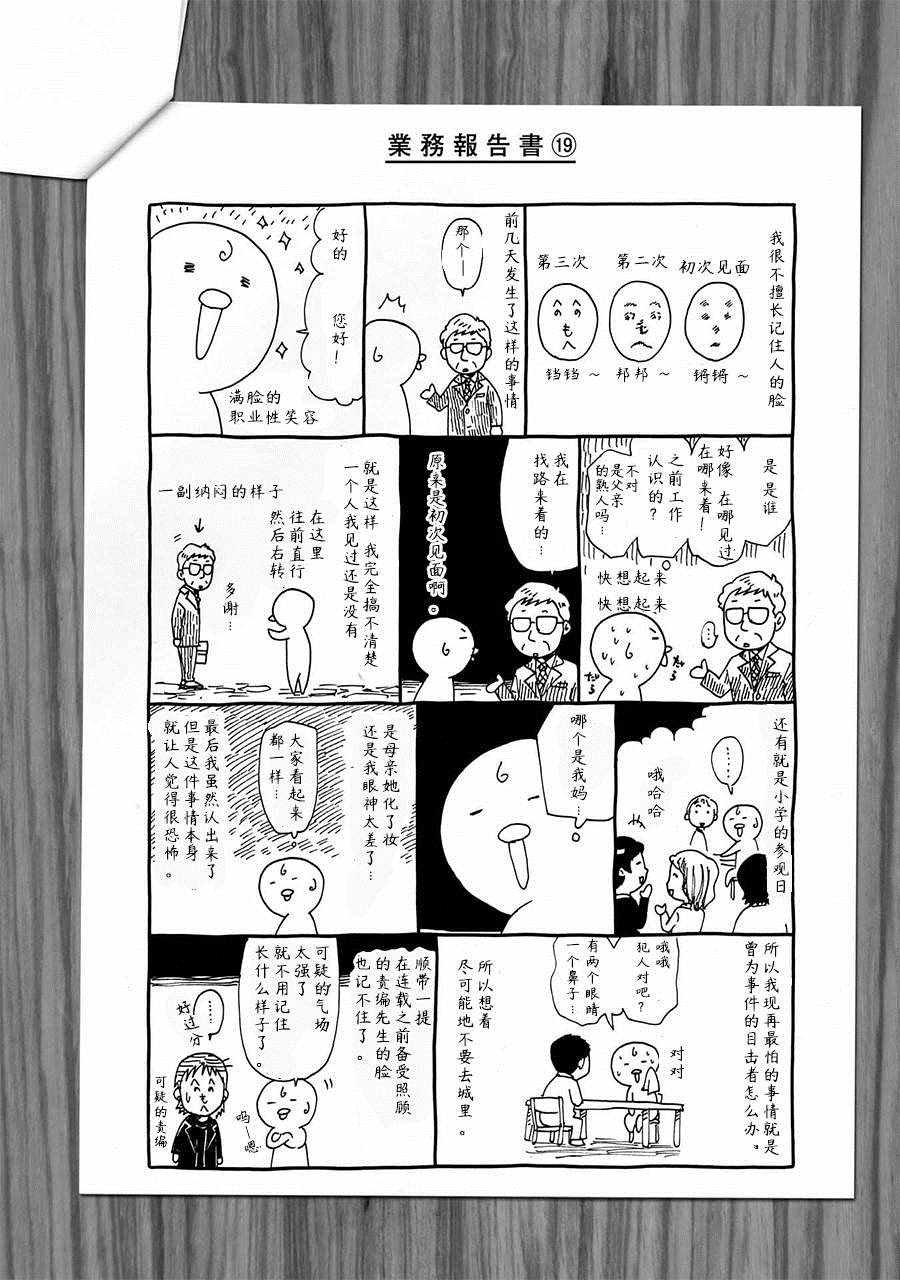 業務報告書⑲
我很不擅长记住人的脸
初次见面
第二次
第三次
锵锵~
邦邦~
铛铛~
前几天发生了这样的事情
那个—
好的
您好!
满脸的
职业性笑容
是 是谁
好像 在哪见过
在哪来着!
之前工作
认识的?
不对
是父亲
的熟人吗…
快想起来
快想起来
…
だら
だら
我在
找路来着的…
原来是初次见面啊。
就是这样 我完全搞不清楚
一个人我见过还是没有
在这里
往前直行
然后右转
一副纳闷的样子
多谢…
还有就是小学的参观日
……
哦哈哈
哪个是
我妈…
是母亲她化了妆
还是我眼神太差了…
大家看起来
都一样…
最后我虽然认出来了
但是这件事情本身
就让人觉得很恐怖。
所以我现再最怕的事情就是
曾为事件的目击者怎么办。
哦哦
犯人对吧?
有两个眼睛
一个鼻子…
对对
所以想着
尽可能地不要去城里。
顺带一提
在连载之前备受照顾
的责编先生的脸
也记不住了。
可疑的气场
太强了
就不用记住
长什么样子了。
呜—
嗯…
……
好过分
可疑的责编